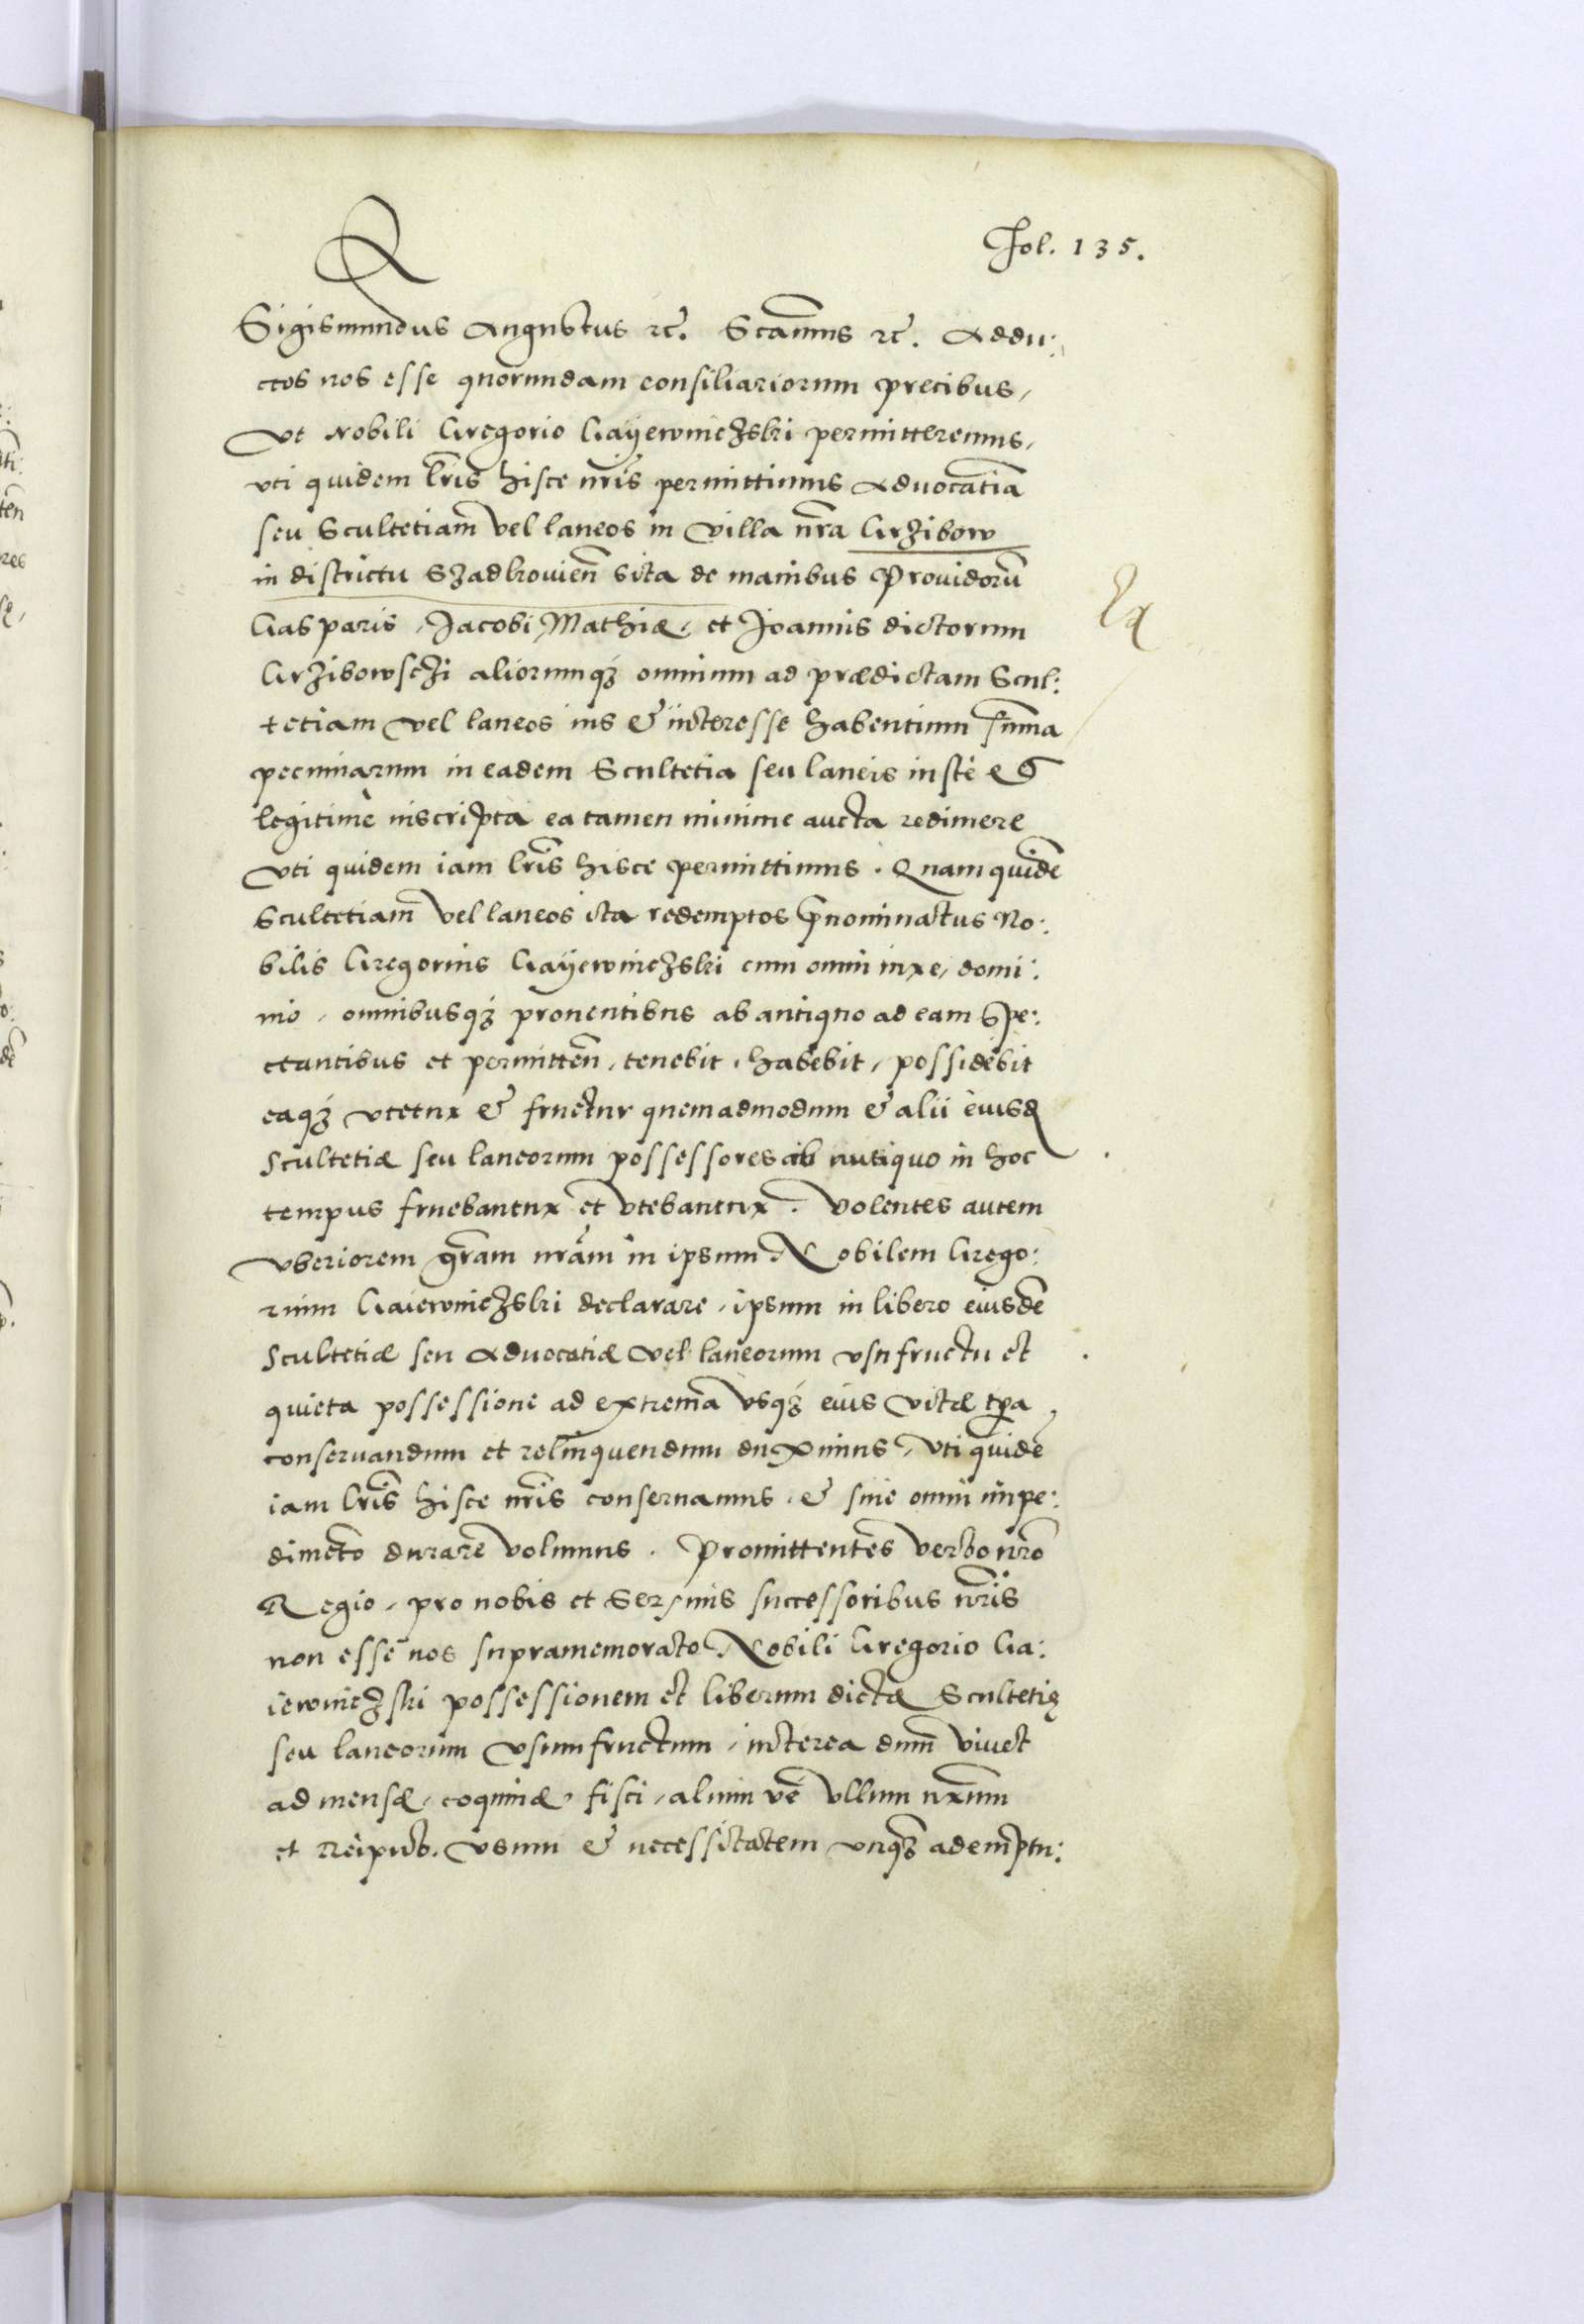 Fol. 135.
Sigismundus Augustus ꝛc̃. Scãmus ꝛc̃. Addu:
ctos nos esse quorundam consiliariorum precibus,
Vt Nobili Gregorio Gayewniczski permitteremus,
vti quidem lr̃is hisce nr̃is permittimus Aduocatiã
seu Scultetiam̃ vel laneos in Villa nr̃a Grzibow
in districtu Szadkouien̄ sita de manibus Prouidorũ
Gasparis, Jacobi, Mathiæ, et Joannis dictorum
Grzibowsczi aliorumqꝫ omnium ad prædictam Scul:
tetiam vel laneos ius & interesse habentium sum̃a
pecuniarum in eadem Scultetia seu laneis iustè et
legitimè inscripta ea tamen minime aucta redimere
Vti quidem iam lr̃is hisce permittimus. Quam quidẽ
Scultetiam̃ vel laneos ita redemptos p̃nominatus No:
bilis Gregorius Gayewniczski cum omni iure, domi:
nio, omnibusqꝫ prouentibus ab antiquo ad eam spe:
ctantibus et permitteñ, tenebit, habebit, possidebit
eaqꝫ vtetur & fruetur quemadmodum & alii eiusd
Scultetiæ seu laneorum possessores ab antiquo in hoc
tempus fruebantur et vtebantur. Volentes autem
vberiorem gr̃am nr̃am in ipsum Nobilem Grego:
rium Gaiewniczski declarare, ipsum in libero eiusdẽ
Scultetiæ seu Aduocatiæ vel laneorum vsufructu et
quieta possessione ad extrema vsqꝫ eius vitæ tp̃a
conseruandum et relinquendum duximus, vti quidẽ
iam lr̃is hisce nr̃is conseruamus, & sine omni impe:
dimento durare volumus. Promittentes verbo nr̃o
Regio, pro nobis et Serſmis successoribus nr̃is
non esse nos supramemorato Nobili Gregorio Ga:
iewniczski possessionem et liberum dictæ Scultetię
seu laneorum vsumfructum, interea dum̃ viuet
ad mensæ, coquinæ, fisci, alium vè vllum nr̃um
et Reipub. vsum & necessitatem vnqꝫ ademptu: